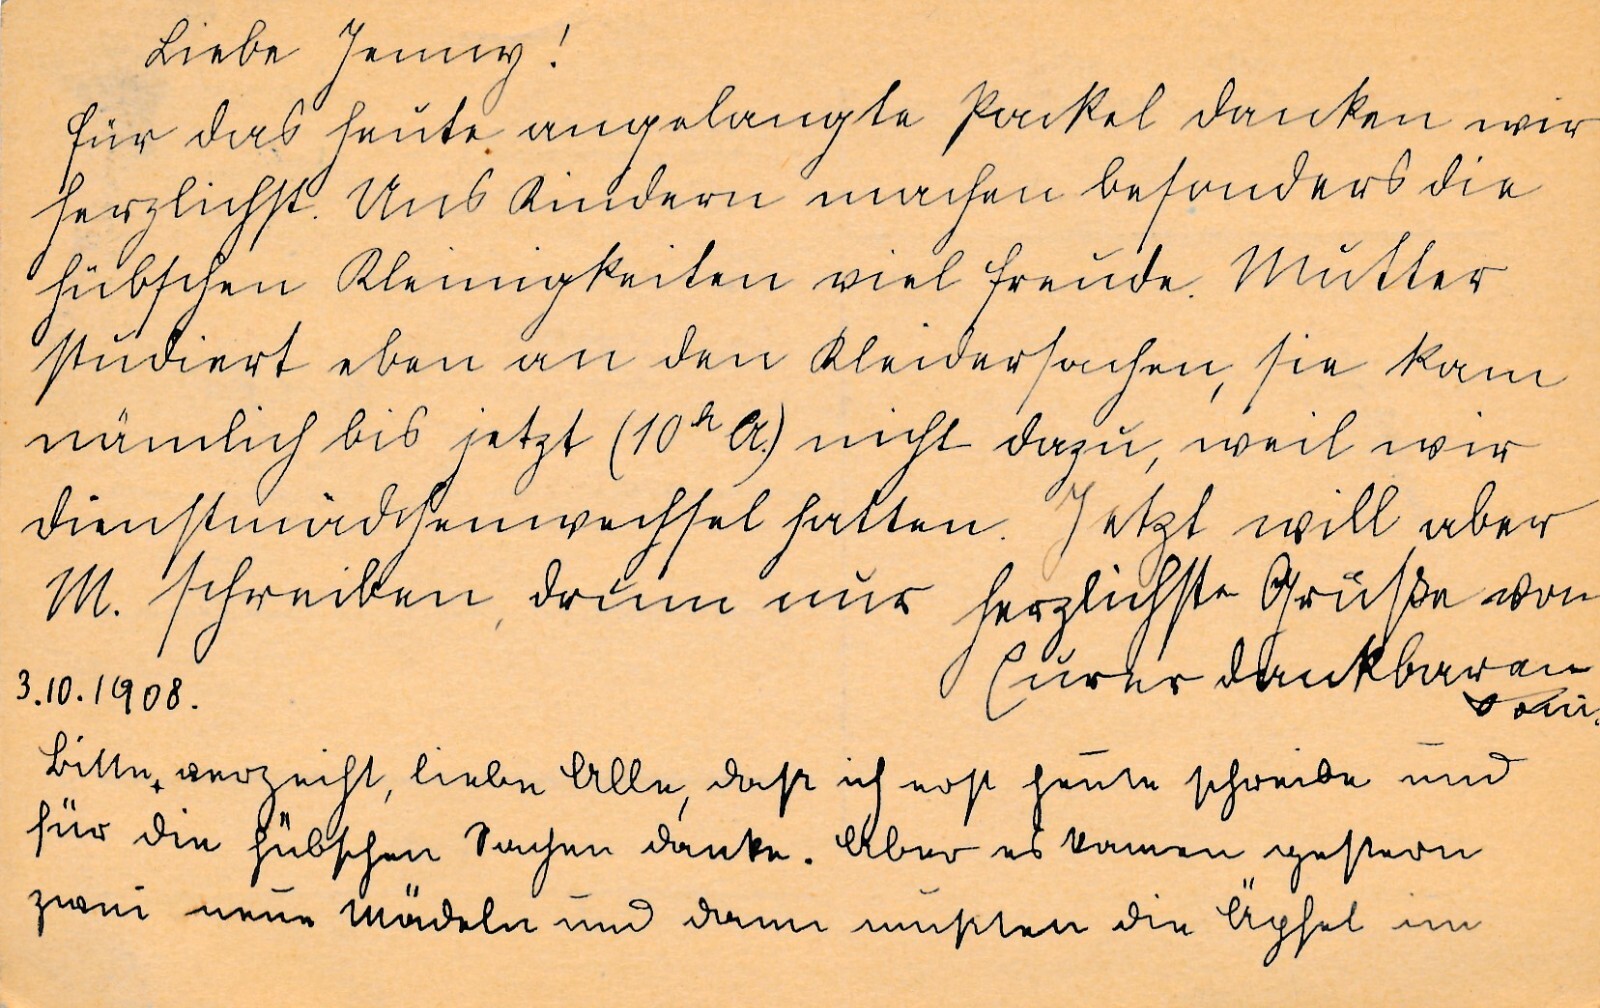 Liebe Jenny!
Für das heute angelangte Packel danken wir
herzlichst. Uns Kindern machen besonders die
hübschen Kleinigkeiten viel Freude. Mutter
studiert eben an den Kleidersachen, sie kam
nämlich bis jetzt (10h A.) nicht dazu, weil wir
Dienstmädchenwechsel hatten. Jetzt will aber
M. schreiben, drum nur herzlichste Grüße von
Eurer dankbaren
3.10.1908.
Bitte, verzeiht, liebe Alle, daß ich erst heute schreibe und
für die hübschen Sachen danke. Aber es kamen gestern
zwei neue Mädeln und dann mußten die Äpfel im